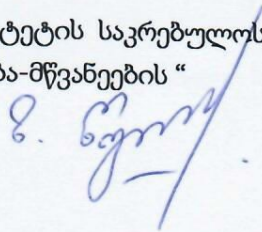 ტეტის საკრებულოს
ბა-მწვანეების“